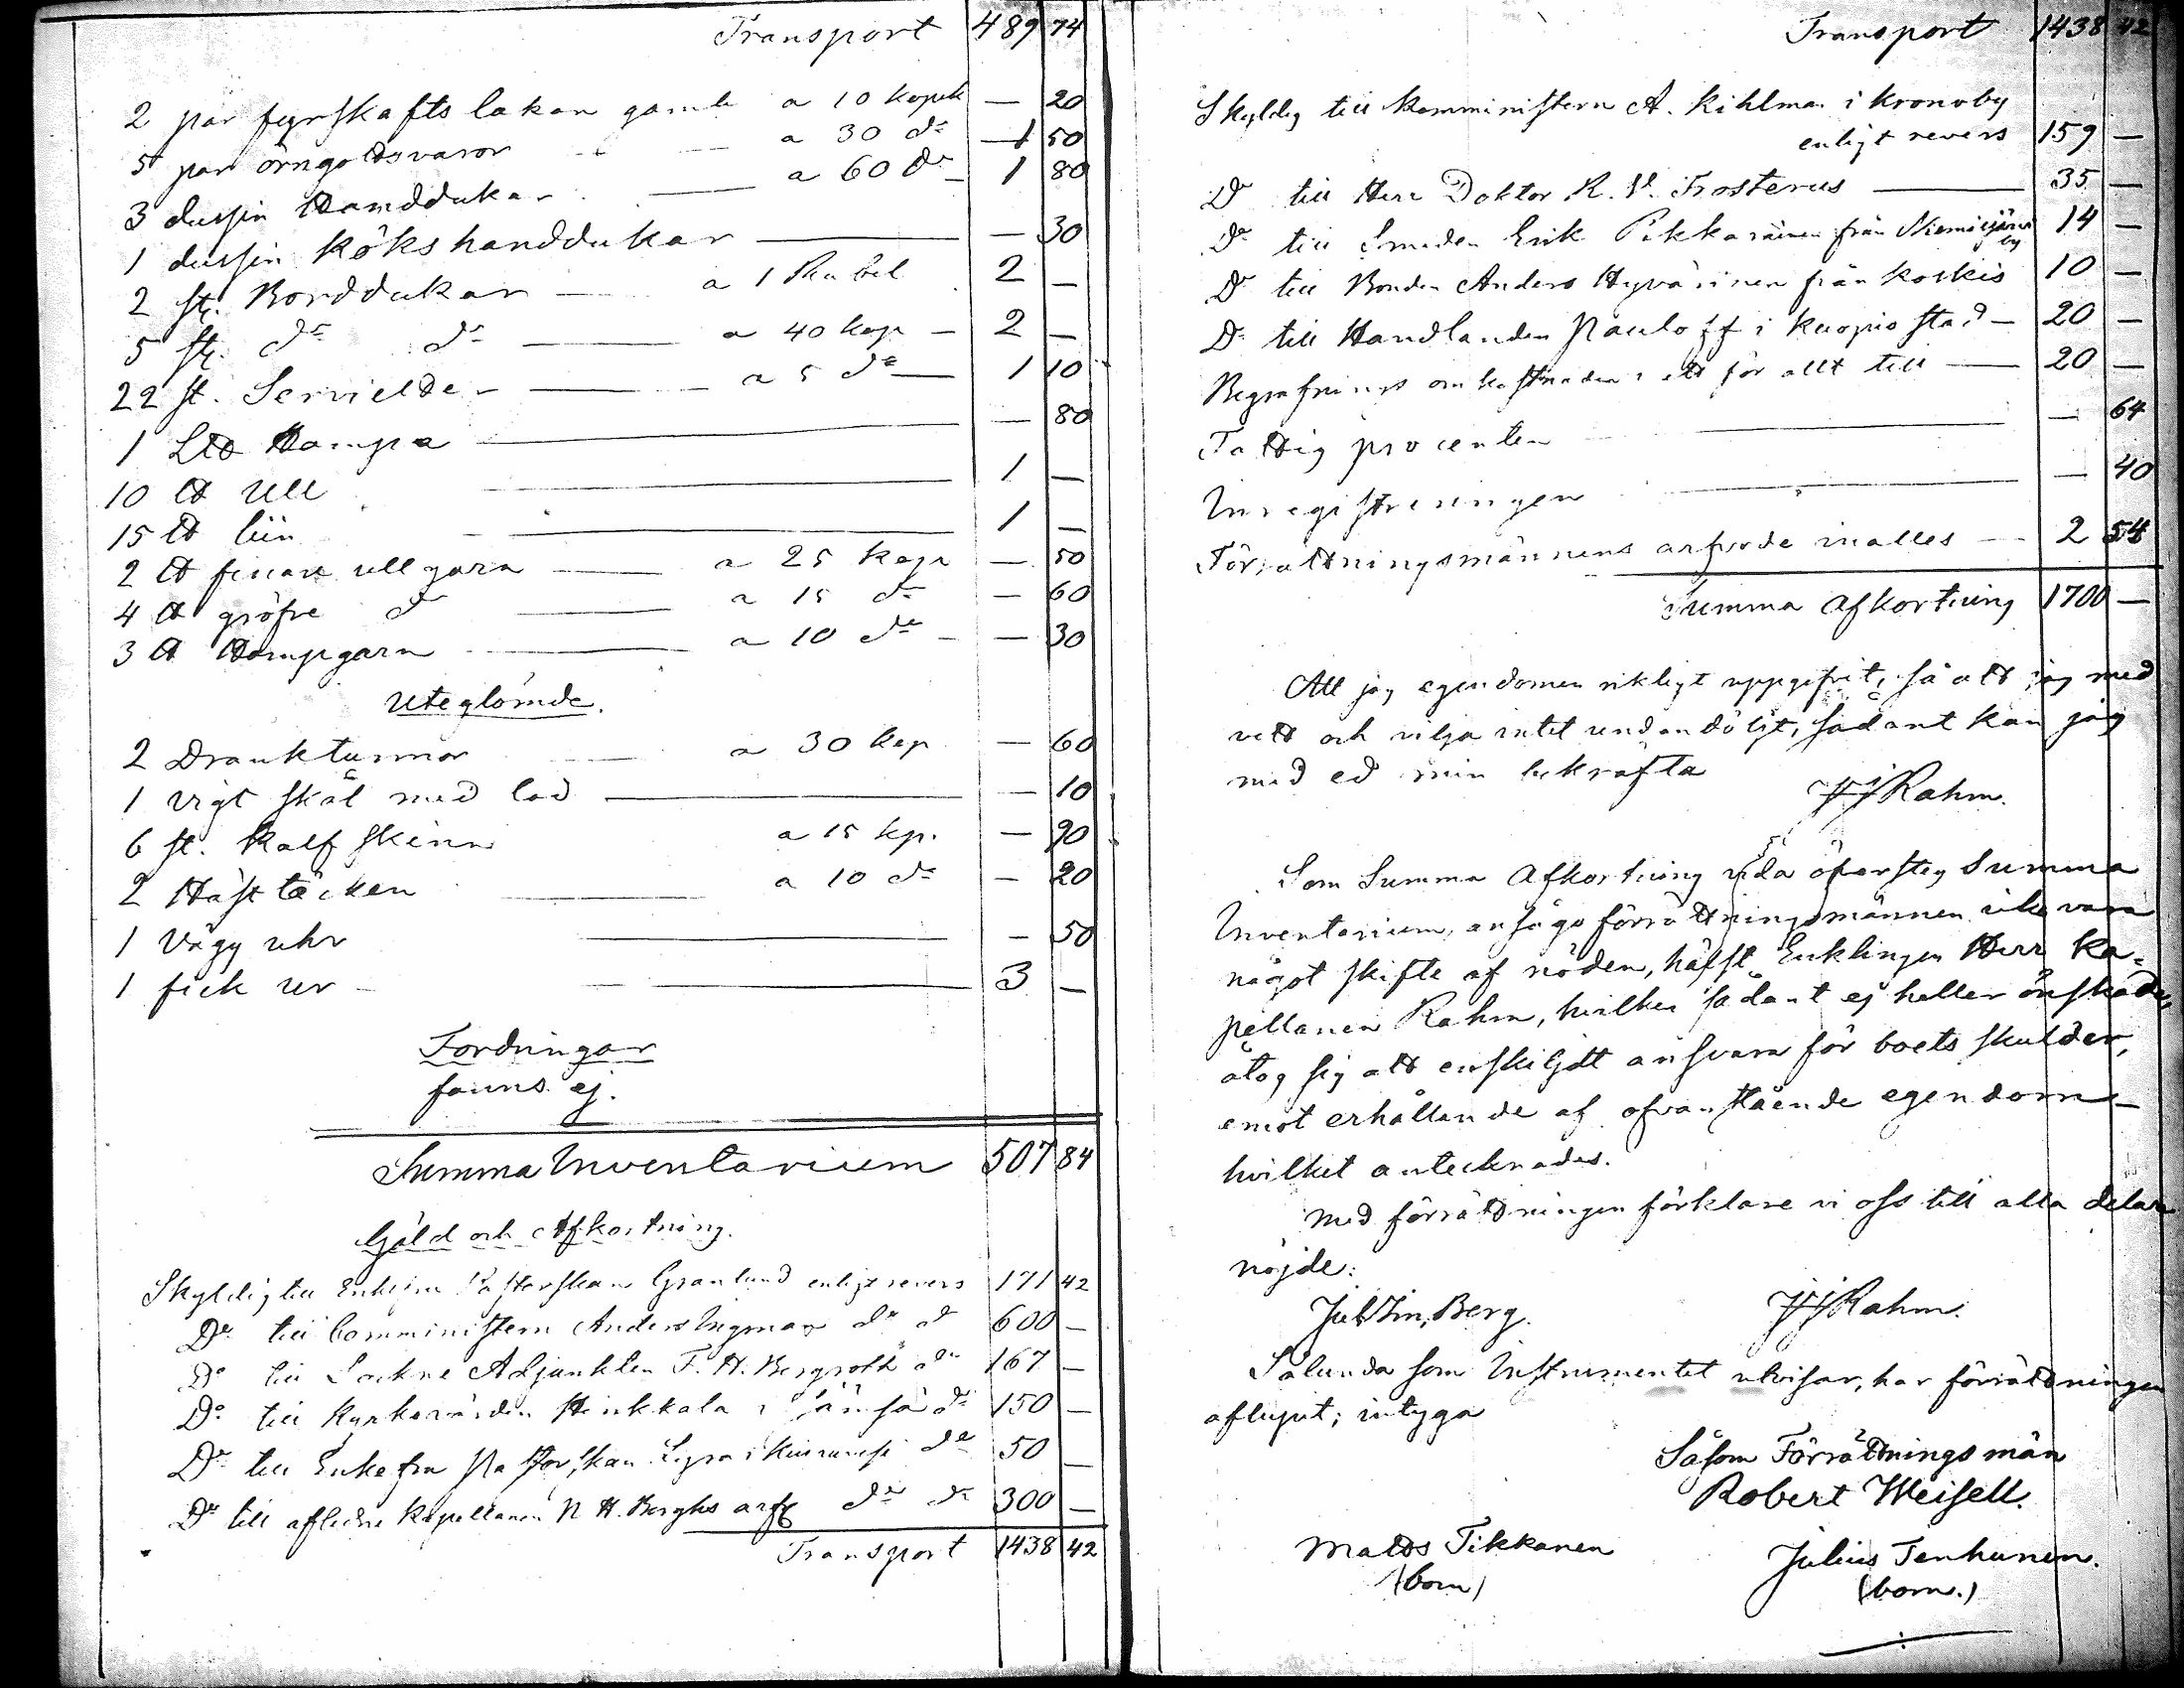 Transport 489 74
2 par fyrskafts lakan gamle a 10 kopek — 20
5 par örngottsvaror — a 30 do 1 50
3 dussin Handdukar — a 60 do 1 80
1 dussin Kökshanddukar — — 30
2 st. Borddukar — a 1 Rubel 2 —
5 st. do do — a 40 kop — 2 —
22 st. Servietter — a 5 do — 1 10
1 Ltt Hampa — — 80
10 tt Ull — 1 —
15 tt lin — 1 —
2 tt finare ullgarn — a 25 kop — 50
4 tt gröfre do — a 15 do — 60
3 tt Hampgarn — a 10 do — 30
Uteglömde.
2 Dranktunnor a 30 kop — 60
1 vigt skål med lod — — 10
6 st. Kalfskinn a 15 kp. — 90
2 Hästtäcken — a 10 do — 20
1 Vägg uhr — — 50
1 fick ur — 3 —
Fordringar
fanns ej.
Summa Inventarium 507 84
Gäld och Afkortning.
Skyldig till Enkefru Pastorskan Granlund enligt revers 171 42
Do till Comministern Anders Ingman do do 600 —
Do till Sockne Adjunkten F. H. Bergroth do 167 —
Do till Kyrkovärden Hinkkala i Jämsä do 150 —
Do till Enkefru Pastorskan do 50 —
Do till aflidne Kapellanen N H. Berghs arfv do do 300 —
Transport 1438 42
Transport 1438 42
Skyldig till Komministern A. Kihlman i Kronoby
enligt revers 159 —
Do till Herr Doktor R. V. Frosterus — 35 —
Do till Smeden Erik Pikkarainen från Niemisjärvi by 14 —
Do till Bonden Anders Hyvärinen från Koskis 10 —
Do till Handlanden Pauloff i Kuopio stad — 20 —
Begrafnings omkostnader i ett för allt till — 20 —
Fattig procenten — — 64
Inregistreringen — — 40
Förrättningsmännens arfvode inalles — 2 54
Summa Afkortning 1700 —
Att jag egendomen riktigt uppgifvit, så att jag med
vett och vilja intet undandöljt, sådant kan jag
med ed min bekräfta
JJRahm.
Som Summa Afkortning vida öfversteg Summa
Inventarium, ansågo förrättningsmännen icke vara
något skifte af nöden, hälst Enklingen Herr Ka-
pellanen Rahm, hvilken sådant ej heller önskade,
åtog sig att enskiljdt ansvara för boets skulder,
emot erhållande af ofvanstående egendom —
hvilket antecknades.
Med förrättningen förklare vi oss till alla delar
nöjde:
Jul. Im. Berg. JJRahm.
Sålunda som Instrumentet utvisar, har förrättningen
aflupit; intyga
Såsom Förrättningsmän
Robert Weisell.
Matts Tikkanen Julius Tenhunen.
(bom) (bom.)